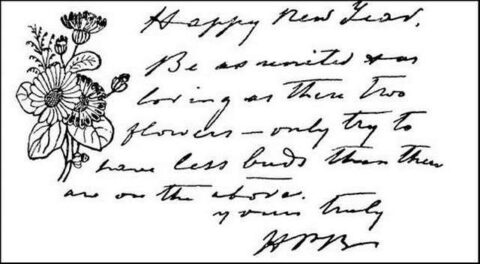 Happy New Year.
Be as united & as
loving as these two
flowers — only try to
have less buds than there
are on the above.
yours truly
HPB